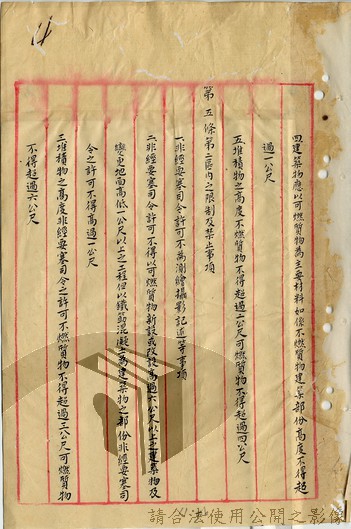 四建築物應以可燃質物為主要材料如係不燃質物建築部份高度不得超
過一公尺
五堆積物之高度不燃質物不得超過二公尺可燃質物不得超過四公尺
第五條第二區內之限制及禁止事項
一非經要塞司令許可不得為測繪攝影記述等事項
二非經要塞司令許可不得以可燃質物新設或改設高過六公尺以上之建築物及
變更地面高低一公尺以上之工程但以鐵筋混凝土為建築物之部份非經要塞司
令之許可不得高過一公尺
三堆積物之高度非經要塞司令之許可不燃質物不得超過三公尺可燃質物
不得超過六公尺
請合法使用公開之影像